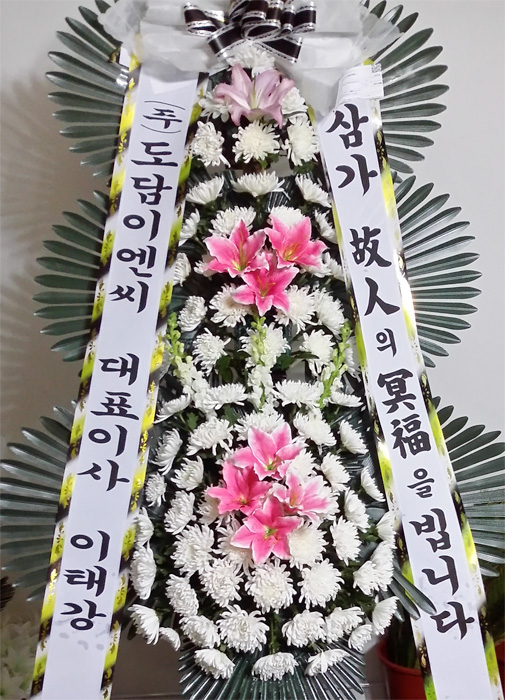 (주)도담이엔씨 대표이사 이태강
삼가 故人의 冥福을 빕니다